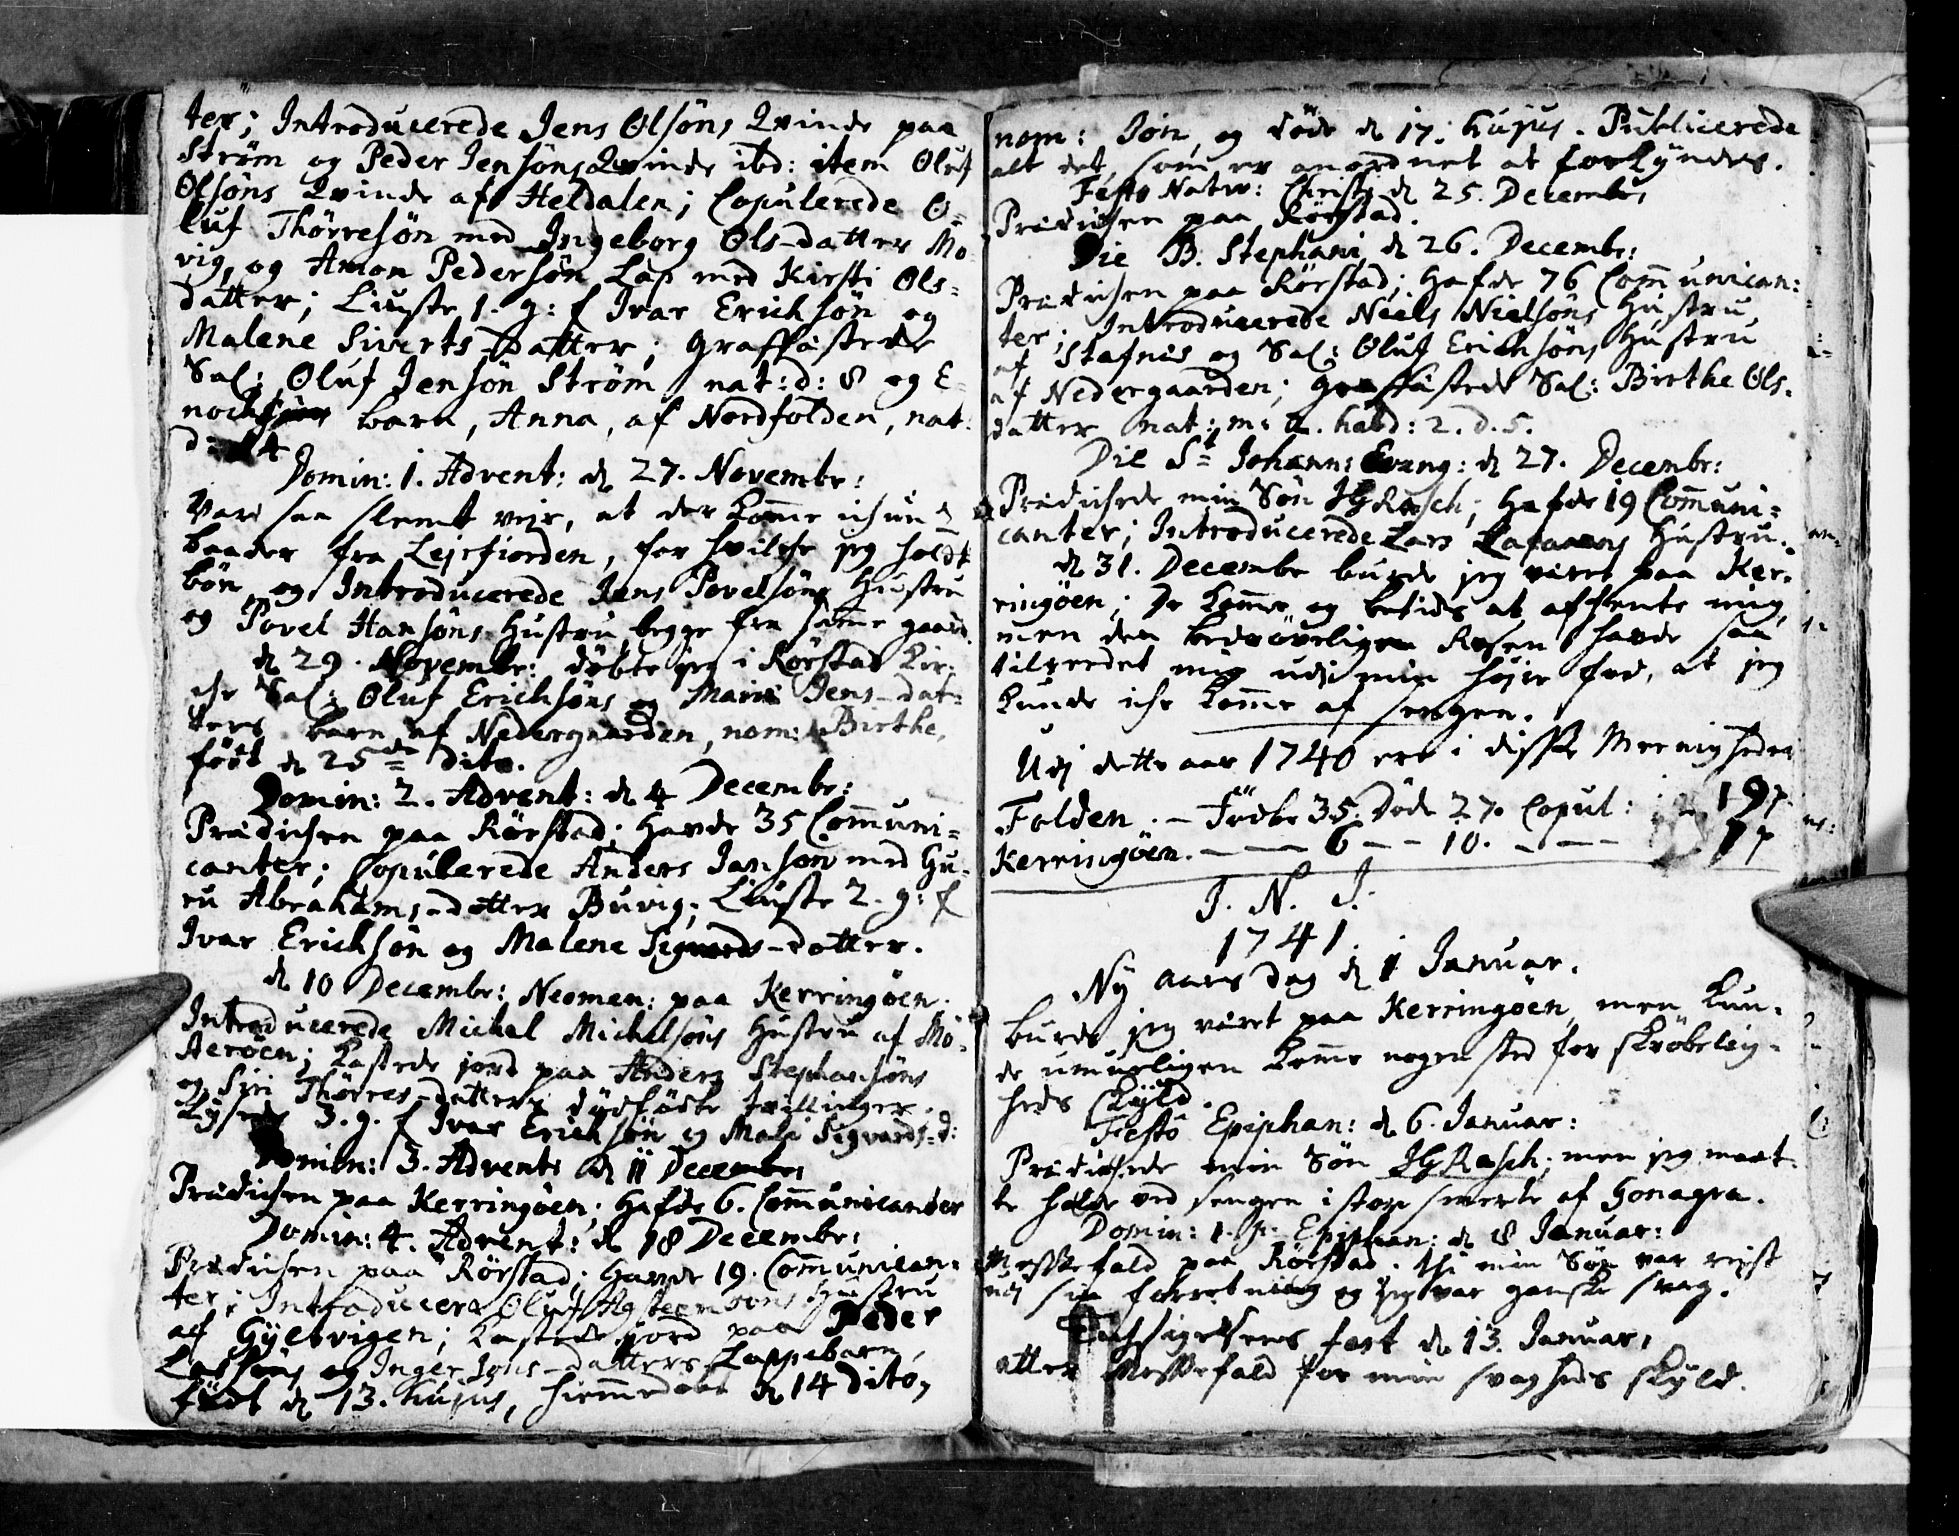 ter; Introducerede Jens Olsöns Qvinde paa
Ström og Peder Jensöns Qvinde ibd: item Oluf
Olsöns Qvinde af Heldalen; Copulerede O-
luf Thörresön med Ingeborg Ols-datter Mo-
vig, og Amon Pedersön Lap med Kirsti Ols-
datter; Liuste 1. g: f Ivar Erichsön og
Malene Siverts-datter; Graffästede
Sal: Oluf Jensön Ström nat: d: 8 og E-
noch barn, Anna, af Nordfolden, nat:
d: 14
Domin: 1. Advent: d 27. Novembr:
Var saa slemt vejr, at der komme ichun 2
baader fra Lejrfiorden, for hvilche jeg holdt
bön og Introducerede Jens Povelsöns Hustru
og Povel Hansöns Hustru begge fra samme gaard.
d 29. Novembr: döbte jeg i Rörstad Kir-
che Sal: Oluf Erichsöns og Marie Jens-dat-
ters barn af Nedergaarden, nom: Birthe,
födt d 25de dito.
Domin: 2. Advent: d 4 Decembr:
Prædichen paa Rörstad; Havde 35 Communi-
canter; Copulerede Anders Janson med Gu-
ru Abrahams-datter Buvig; Liuste 2. g: f
Ivar Erichsön og Malene Sigvards-datter.
d 10 Decembr: Neomen: paa Kerringöen.
Introducerede Michel Michelsöns Hustru af Mo-
steröen; kastede jord paa Anders Stephansöns
og Siri Thörres-datters dödfödte tvillinger.
Lysede 3. g. f Ivar Erichsön og Mali Sigvards-d:
Domin: 3. Advent: d 11 Decembr:
Prædichen paa Kerringöen; Hafde 6. Communicanter
Domin: 4. Advent: d 18 Decembr:
Prædichen paa Rörstad; Havde 19. Communican-
ter; Introducera Oluf Hustru
af Gyltvigen; kastede jord paa Peder
Larsöns og Inger Jons-datters Lappebarn,
födt d 13. hujus, hiemmedöbt d 14 dito,
nom: Jön, og döde d 17. hujus. Publicerede
alt det, som er anordnet at forkyndes.
Festo Nativ: Christi d 25. Decembr:
Prædichen paa Rörstad.
Die B. Stephani d 26. Decembr:
Prædichen paa Rörstad; Hafde 76 Communican:
ter; Introducerede Niels Nielsöns Hustru
af Stafnis og Sal: Oluf Erichsöns Hustru
af Nedergaarden; Graffästede Sal: Birthe Ols-
datter nat: m: hebd: 2. d. 5.
Die St Johann: Evang: d 27. Decembr:
Prædichede min Sön JGRasch; Hafde 19 Communi-
canter; Introducerede Lars Hustru.
d 31. Decembr burde jeg väret paa Ker-
ringöen; De komme og betids at affhente mig,
men den bedröveligen Rosen havde saa
tilreedet mig udi min höjre fod, at jeg
kunde iche komme af sengen.
Udj dette aar 1740 ere i disse Meenigheder
Folden. - Födte 35. Döde 27. Copul:
Kerringöen. — 6 - - 10. - - -
J. N. J.
1741.
Ny aars dag d 1 Januar.
burde jeg väret paa Kerringöen, men kun-
de umueligen komme nogensted for skröbelig-
heds skyld.
Festo Epiphan: d 6. Januar:
Prædichede min Sön JGRasch; men jeg maat-
te holde ved sengen i stor smerte af Gonagra.
Domin: 1. p. Epiphan: d 8 Januar:
Messefald paa Rörstad. thi min Sön var rejst
udj sin forretning og jeg var ganske svag.
Tachsigelsens fest d 13. Januar,
atter Messefald for min svagheds skyld.